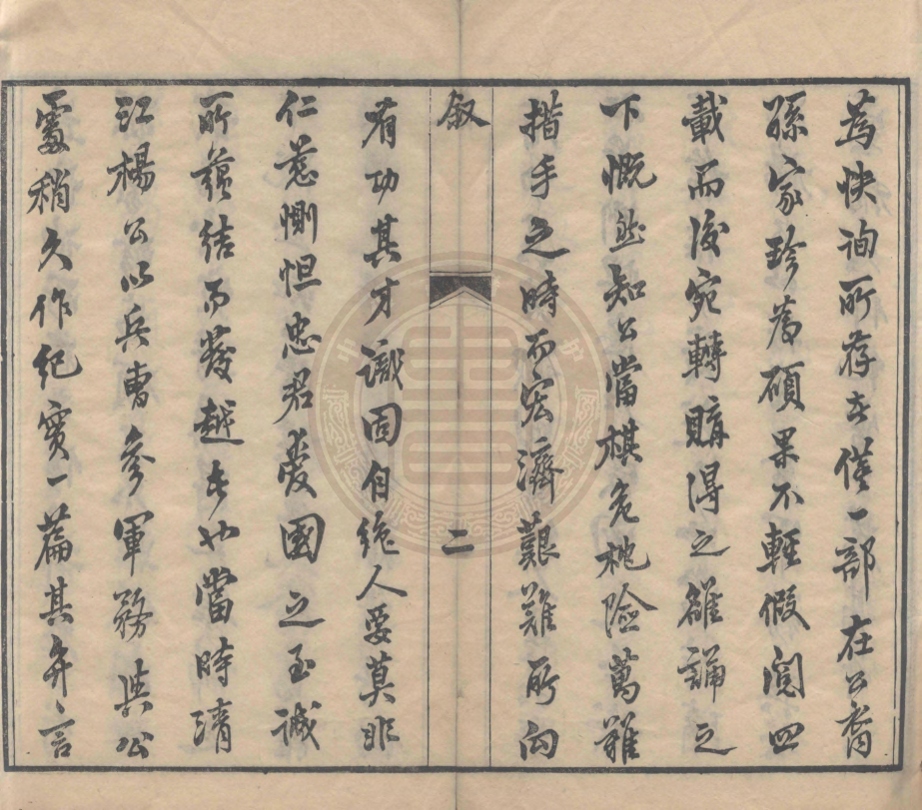 為快詢所存者僅一部在公裔
孫家珍為碩果不輕假閱四
載而後宛轉購得之雒誦之
下慨然知公當棋危梲險萬難
措手之時而宏濟艱難所向
叙
二
有功其才識固自絶人要莫非
仁慈惻怛忠君愛國之至誠
所蘊結而發越者也當時清
江楊公以兵曹參軍務與公
處稍久作紀實一篇其弁言